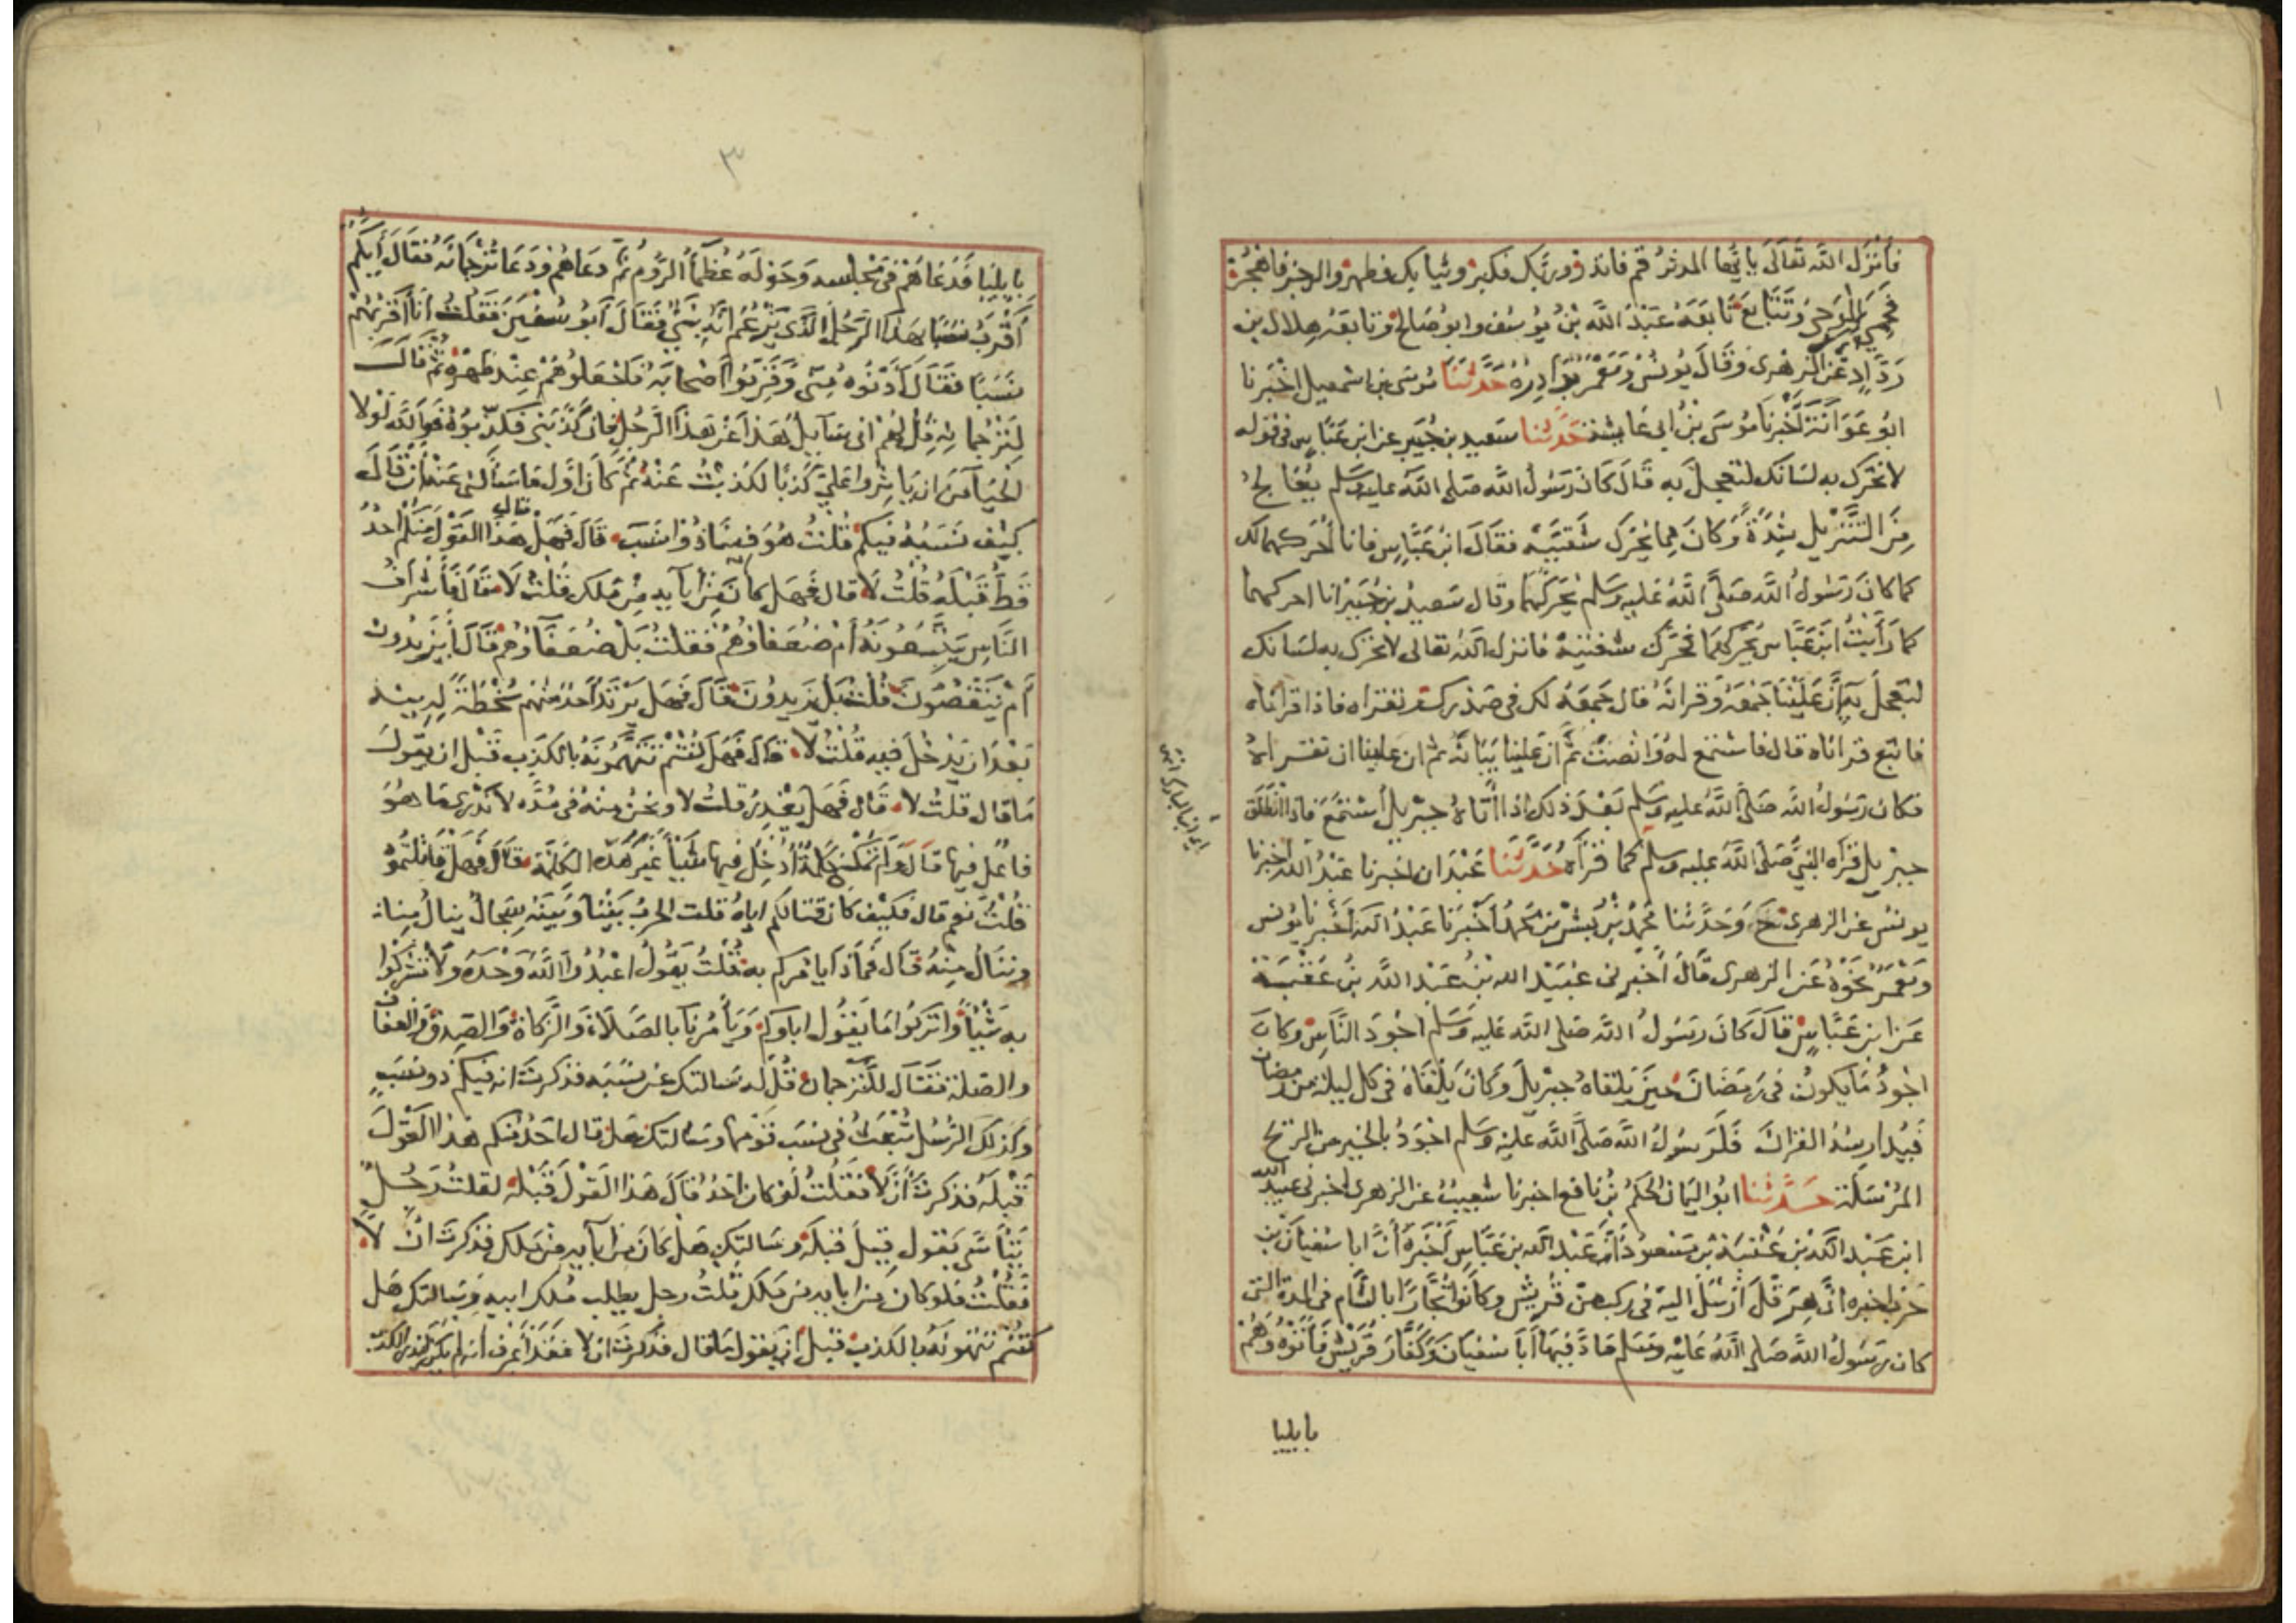 فأنزل الله تعالى يا يها المدثر قم فانذر وربك فكبر وثيابك فطهر والرجز فاهجر
فحمي الوحي وتتابع تابعه عبد الله بن يوسف وابو صالح وتابعه هلال بن
رداد عن الزهرى وقال يونس ومعمر بوادره حدثنا موسى بن اسمعيل اخبرنا
ابو عوانة اخبرنا موسى بن ابى عايشة حدثنا سعيد بن جبير عن ابن عباس فى قوله
لا تحرك به لسانك لتعجل به قال كان رسول الله صلى الله عليه وسلم يعالج
من التنزيل شدة وكان مما يحرك شفتيه فقال ابن عباس فانا احركهما لك
كما كان رسول الله صلى الله عليه وسلم يحركهما وقال سعيد بن جبير انا احركهما
كما رأيت ابن عباس يحركهما فحرك شفتيه فانزل الله تعالى لا تحرك به لسانك
لتعجل به ان علينا جمعه وقرانه قال جمعه لك فى صدرك وتقراه فاذا قراناه
فاتبع قرانه قال فاستمع له وانصت ثم ان علينا بيانه ثم ان علينا ان تقراه
فكان رسول الله صلى الله عليه وسلم بعد ذلك اذا أتاه جبريل استمع فاذا انطلق
جبريل قرأه النبى صلى الله عليه وسلم كما قرأه حدثنا عبدان اخبرنا عبد الله اخبرنا
يونس عن الزهرى ح وحدثنا محمد بن بشر بن محمد أخبرنا عبد الله اخبرنا يونس
ومعمر نحوه عن الزهرى قال أخبرنى عبيد الله بن عبد الله بن عتبة
عن ابن عباس قال كان رسول الله صلى الله عليه وسلم اجود الناس وكان
اجود ما يكون فى رمضان حين يلقاه جبريل وكان يلقاه فى كل ليلة من رمضان
فيدارسه القران فلرسول الله صلى الله عليه وسلم اجود بالخير من الريح
المرسلة حدثنا ابو اليمان الحكم بن نافع اخبرنا شعيب عن الزهرى اخبرنى عبيد الله
ابن عبد الله بن عتبة بن مسعود أن عبد الله بن عباس أخبره أن ابا سفيان بن
حرب اخبره ان هرقل أرسل اليه فى ركب من قريش وكانوا تجارا بالشام فى المدة التى
كان رسول الله صلى الله عليه وسلم ماد فيها أبا سفيان وكفار قريش فأتوه وهم
بايليا
بايليا فدعاهم فى مجلسه وحوله عظمآ الروم ثم دعاهم ودعا ترجمانه فقال ايكم
أقرب نسبا بهذا الرجل الذى يزعم انه نبى فقال ابو سفين فقلت أنا أقربهم
نسبا فقال أدنوه منى وقربوا أصحابه فاجعلوهم عند ظهره ثم قال
لترجمانه قل لهم انى سايل هذا عن هذا الرجل فان كذبنى فكذبوه فوالله لولا
الحيآ من ان ياثروا على كذبا لكذبت عنه ثم كان اول ما سألنى عنه أن قال
كيف نسبه فيكم قلت هو فينا ذو نسب قال فهل قال هذا القول منكم احد
قط قبله قلت لا قال فهل كان من آبآيه من ملك قلت لا قال فأشراف
الناس يتبعونه أم ضعفاؤهم فقلت بل ضعفآؤهم قال أيزيدون
أم ينقصون قلت بل يزيدون قال فهل يرتد احد منهم سخطة لدينه
بعد ان يدخل فيه قلت لا قال فهل كنتم تتهمونه بالكذب قبل ان يقول
ما قال قلت لا قال فهل يغدر قلت لا ونحن منه فى مدة لا ندرى ما هو
فاعل فيها قال ولم تمكنى كلمة أدخل فيها شيئا غير هذه الكلمة قال فهل قاتلتموه
قلت نعم قال فكيف كان قتالكم اياه قلت الحرب بيننا وبينه سجال ينال منا
وننال منه قال فماذا يامركم به قلت يقول اعبدوا الله وحده ولا تشركوا
به شيئا واتركوا ما يقول اباوكم ويأمرنا بالصلاة والزكاة والصدق والعفاف
والصلة فقال للترجمان قل له سالتك عن نسبه فذكرت انه فيكم ذو نسب
وكذلك الرسل تبعث فى نسب قومها وسالتك هل قال احد منكم هذا القول
قبله فذكرت أن لا فقلت لو كان احد قال هذا القول قبله لقلت رجل
يتأسى بقول قيل قبله وسالتك هل كان من آبآيه من ملك فذكرت ان لا
فقلت فلو كان من ابايه من ملك قلت رجل يطلب ملك ابيه وسالتك هل
كنتم تتهمونه بالكذب قبل أن يقول ما قال فذكرت ان لا فقد أعرف انه لم يكن ليذر الكذب
٣